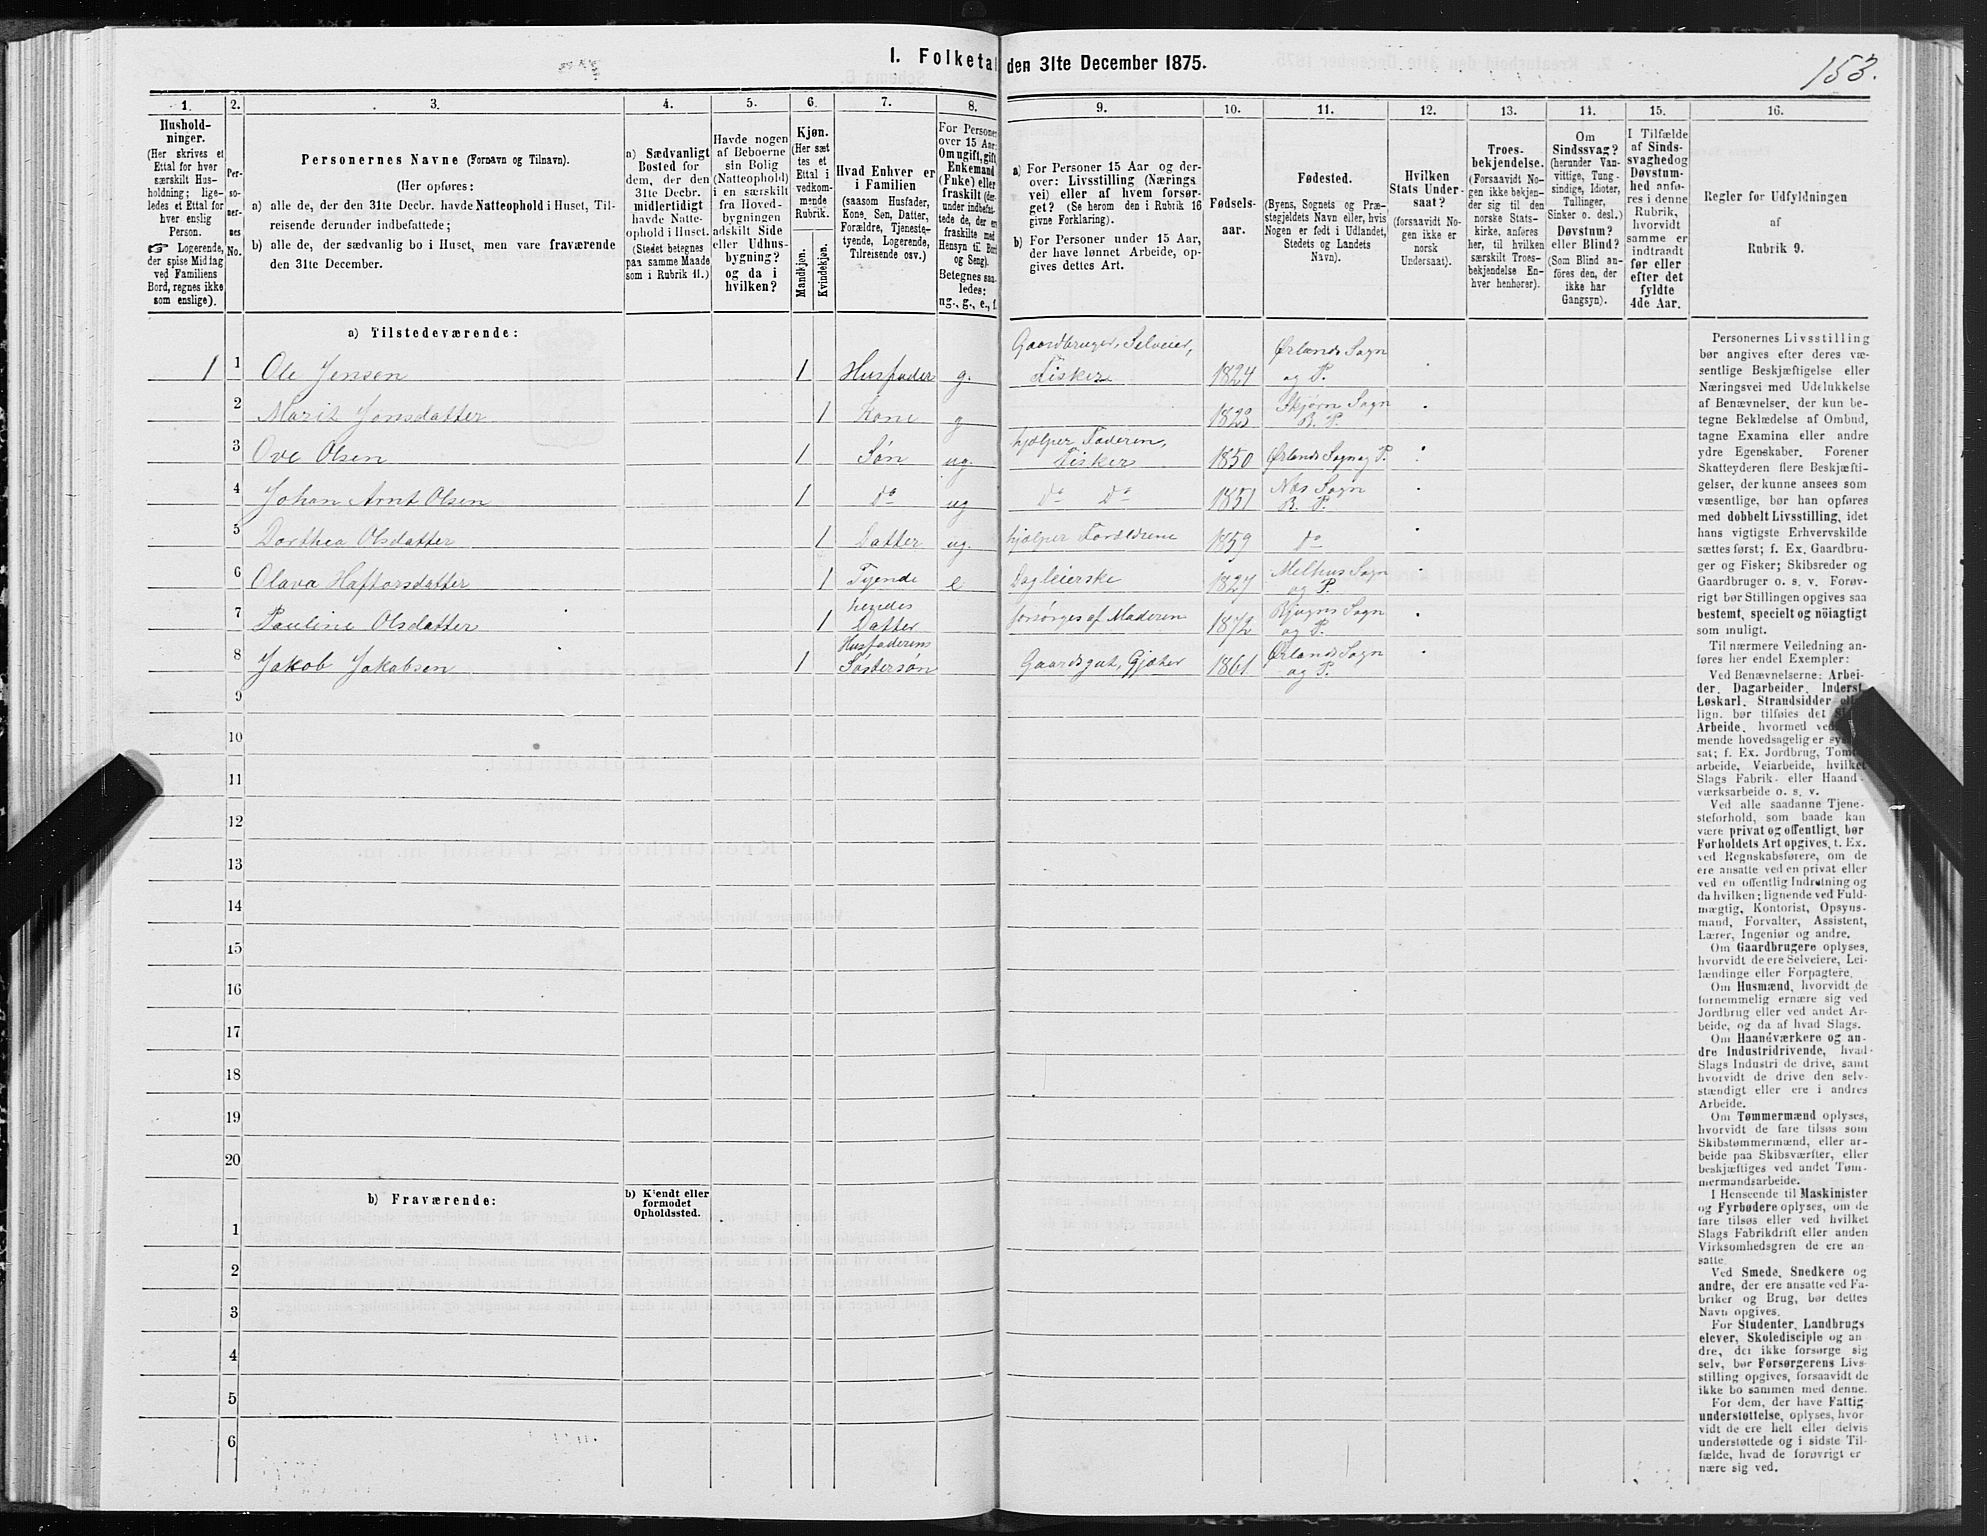 153.
I. Folketal den 31te December 1875.
1. 2. 3. 4. 5. 6. 7. 8. 9. 10. 11. 12. 13. 14. 15. 16.
Hushold-
ninger.
(Her skrives et
Ettal for hver
særskilt Hus-
holdning; lige-
ledes et Ettal for
hver enslig
Person.
☞ Logerende,
der spise Middag
ved Familiens
Bord, regnes ikke
som enslige).
Per-
so-
ner-
nes
No.
Personernes Navne (Fornavn og Tilnavn).
(Her opføres:
a) alle de, der den 31te Decbr. havde Natteophold i Huset, Til-
reisende derunder indbefattede;
b) alle de, der sædvanlig bo i Huset, men vare fraværende
den 31te December.
a) Sædvanligt
Bosted for
dem, der den
31te Decbr.
midlertidigt
havde Natte-
ophold i Huset.
(Stedet betegnes
paa samme Maade
som i Rubrik 11.)
Havde nogen
af Beboerne
sin Bolig
(Natteophold)
i en særskilt
fra Hoved-
bygningen
adskilt Side
eller Udhus-
bygning?
og da i
hvilken?
Kjøn.
(Her sæt
tes et
Ettal i
vedkom-
mende
Rubrik.
Mandkjøn.
Kvindekjøn.
Hvad Enhver er
i Familien
(saasom Husfader,
Kone, Søn, Datter,
Forældre, Tjeneste-
tyende, Logerende,
Tilreisende osv.)
For Personer
over 15 Aar:
Om ugift, gift,
Enkemand
(Enke) eller
fraskilt (der-
under indbefat-
tede de, der ere
fraskilte med
Hensyn til Bord
og Seng).
Betegnes saa-
ledes:
ug., g., e., f.
a) For Personer 15 Aar og der-
over: Livsstilling (Nærings
vei) eller af hvem forsør-
get? (Se herom den i Rubrik 16
givne Forklaring).
b) For Personer under 15 Aar,
der have lønnet Arbeide, op-
gives dettes Art.
Fødsels-
aar.
Fødested.
(Byens, Sognets og Præ-
stegjeldets Navn eller, hvis
Nogen er født i Udlandet,
Stedets og Landets
Navn).
Hvilken
Stats Under-
saat?
(forsaavidt No-
gen ikke er
norsk
Undersaat).
Troes-
bekjendelse.
(Forsaavidt No-
gen ikke bekjen-
der sig til den
norske Stats-
kirke, anføres
her, til hvilken
særskilt Troes-
bekjendelse En-
hver henhører).
Om
Sindssvag?
(herunder Van-
vittige, Tung-
sindige, Idioter,
Tullinger,
Sinker o. desl.)
Døvstum?
eller Blind?
(Som Blind an-
føres den, der
ikke har
Gangsyn).
I Tilfælde
af Sinds-
svaghed og
Døvstum-
hed anfø-
res i denne
Rubrik,
hvorvidt
samme er
indtraadt
før eller
efter det
fyldte
4de Aar.
Regler for Udfyldningen
af
Rubrik 9.
a) Tilstedeværende:
1 1 Ole Jensen 1 Husfader g. Gaardbruger, Selveier, Fisker 1824 Ørlands Sogn og P.
2 Marit Jonsdatter 1 Kone g 1823 Skjørn Sogn B. P.
3 Ove Olsen 1 Søn ug. hjælper Faderen, Fisker 1850 Ørlands Sogn og P.
4 Johan Arnt Olsen 1 do ug do do 1851 Næs Sogn B. P.
5 Dorthea Olsdatter 1 Datter ug. hjælper Forældrene 1859 do
6 Olava Haftorsdatter 1 Tyende e Dagleierske 1827 Melhus Sogn og P.
7 Pauline Olsdatter 1 hendes Datter forsørges af Moderen 1872 Bjugns Sogn og P.
8 Jakob Jakobsen 1 Husfaderens Søstersøn Gaardsgut, Gjæter 1861 Ørlands Sogn og P.
9
10
11
12
13
14
15
16
17
18
19
20
b) Fraværende:
b) Kjendt eller
formodet
Opholdssted.
1
2
3
4
5
6
Personernes Livsstilling
bør angives efter deres væ-
sentlige Beskjæftigelse eller
Næringsvei med Udelukkelse
af Benævnelser, der kun be-
tegne Beklædelse af Ombud,
tagne Examina eller andre
ydre Egenskaber. Forener
Skatteyderen flere Beskjæfti-
gelser, der kunne ansees som
væsentlige, bør han opføres
med dobbelt Livsstilling, idet
hans vigtigste Erhvervskilde
sættes først; f. Ex. Gaardbru-
ger og Fisker; Skibsreder og
Gaardbruger o. s. v. Forøv-
rigt bør Stillingen opgives saa
bestemt, specielt og nöiagtigt
som muligt.
Til nærmere Veiledning an-
føres her endel Exempler:
Ved Benævnelserne: Arbei-
der, Dagarbeider, Inderst,
Løskarl, Strandsidder eller
lign. bør tilføies det
Arbeide, hvormed
mende hovedsagelig er
sat; f. Ex. Jordbrug,
arbeide, Veiarbeide, hvilket
Slags Fabrik- eller Haand-
værksarbeide o. s. v.
Ved alle saadanne Tjene-
steforhold, som baade kan
være privat og offentligt, bør
Forholdets Art opgives, f. Ex.
ved Regnskabsførere, om de
ere ansatte ved en privat eller
ved en offentlig Indretning og
da hvilken; lignende ved Fuld-
mægtig, Kontorist, Opsyns-
mand, Forvalter, Assistent,
Lærer, Ingeniør og andre.
Om Gaardbrugere oplyses,
hvorvidt de ere Selveiere, Lei-
lændinge eller Forpagtere.
Om Husmænd, hvorvidt de
fornemmelig ernære sig ved
Jordbrug eller ved andet Ar-
beide, og da af hvad Slags.
Om Haandværkere og an-
dre Industridrivende, hvad
Slags Industri de drive, samt
hvorvidt de drive den selv-
stændigt eller ere i andres
Arbeide.
Om Tømmermænd oplyses,
hvorvidt de fare tilsøs som
Skibstømmermænd, eller ar-
beide paa Skibsværfter, eller
beskjæftiges ved andet Tøm-
mermandsarbeide.
I Henseende til Maskinister
og Fyrbødere oplyses, om de
fare tilsøs eller ved hvilket
Slags Fabrikdrift eller anden
Virksomhedsgren de ere an-
satte.
Ved Smede, Snedkere og
andre, der ere ansatte ved Fa-
briker og Brug, bør dettes
Navn opgives.
For Studenter, Landbrugs
elever, Skoledisciple og an-
dre, der ikke forsørge sig
selv, bør Forsørgerens Livs-
stilling opgives, forsaavidt de
ikke bo sammen med denne.
For dem, der have Fattig-
understøttelse, oplyses, hvor-
vidt de ere helt eller delvis
understøttede og i sidste Til-
fælde, hvad de forøvrigt er
nære sig ved.